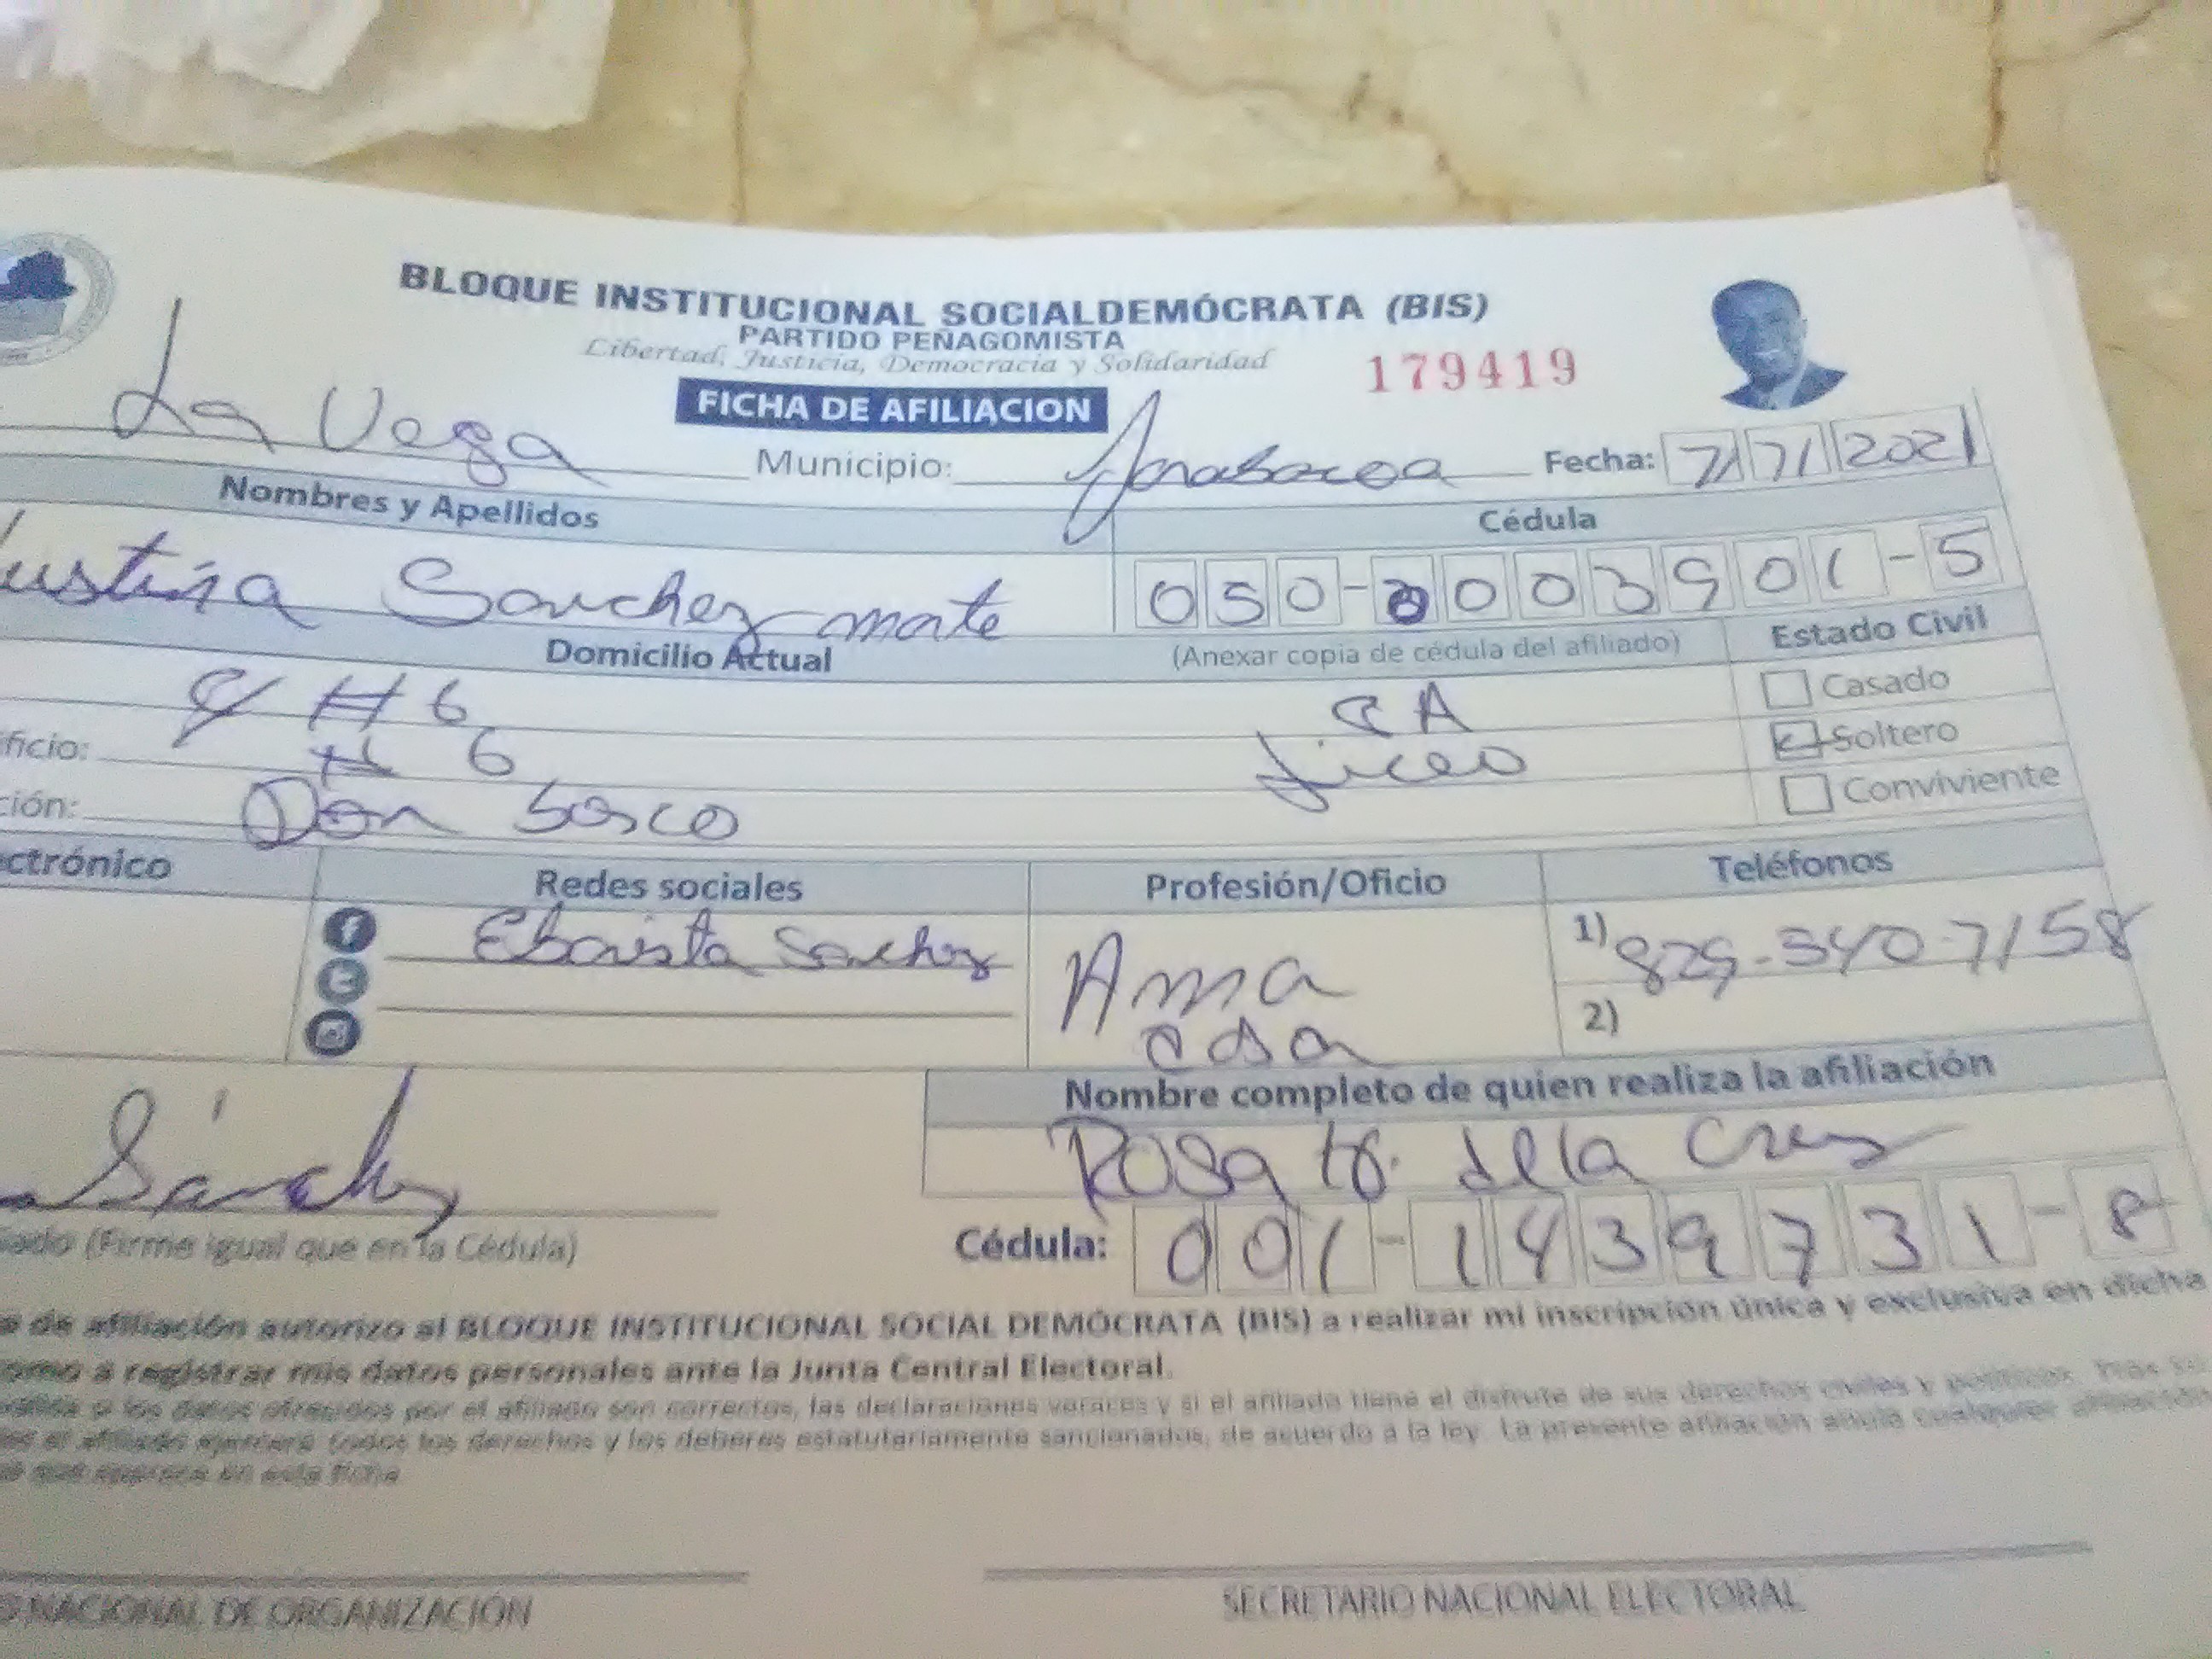 BLOQUE INSTITUCIONAL SOCIALDEMÓCRATA (BIS)
PARTIDO PEÑAGOMISTA
Libertad, Justicia, Democracia y Solidaridad
179419
FICHA DE AFILIACION
La Vega Municipio: Fecha: 7/7/2021
Nombres y Apellidos Cédula
Sanchez 050-0003901-5
Domicilio Actual (Anexar copia de cédula del afiliado) Estado Civil
H 6 Casado
6 Liceo Soltero
Don Bosco Conviviente
Redes sociales Profesión/Oficio Teléfonos
Sanchez Ama 1) 829-340-7158
casa 2)
Nombre completo de quien realiza la afiliación
Sánchez Rosa de la Cruz
(Firme igual que en la Cédula) Cédula: 001-1439731-8
de afiliación autorizo al BLOQUE INSTITUCIONAL SOCIAL DEMÓCRATA (BIS) a realizar mi inscripción única y exclusiva en dicha
a registrar mis datos personales ante la Junta Central Electoral.
los datos ofrecidos por el afiliado son correctos, las declaraciones veraces y si el afiliado tiene el disfrute de sus derechos civiles y políticos. Tras su
el afiliado ejercerá todos los derechos y los deberes estatutariamente sancionados, de acuerdo a la ley. La presente afiliación anula cualquier afiliación
que aparece en esta ficha
NACIONAL DE ORGANIZACIÓN SECRETARIO NACIONAL ELECTORAL